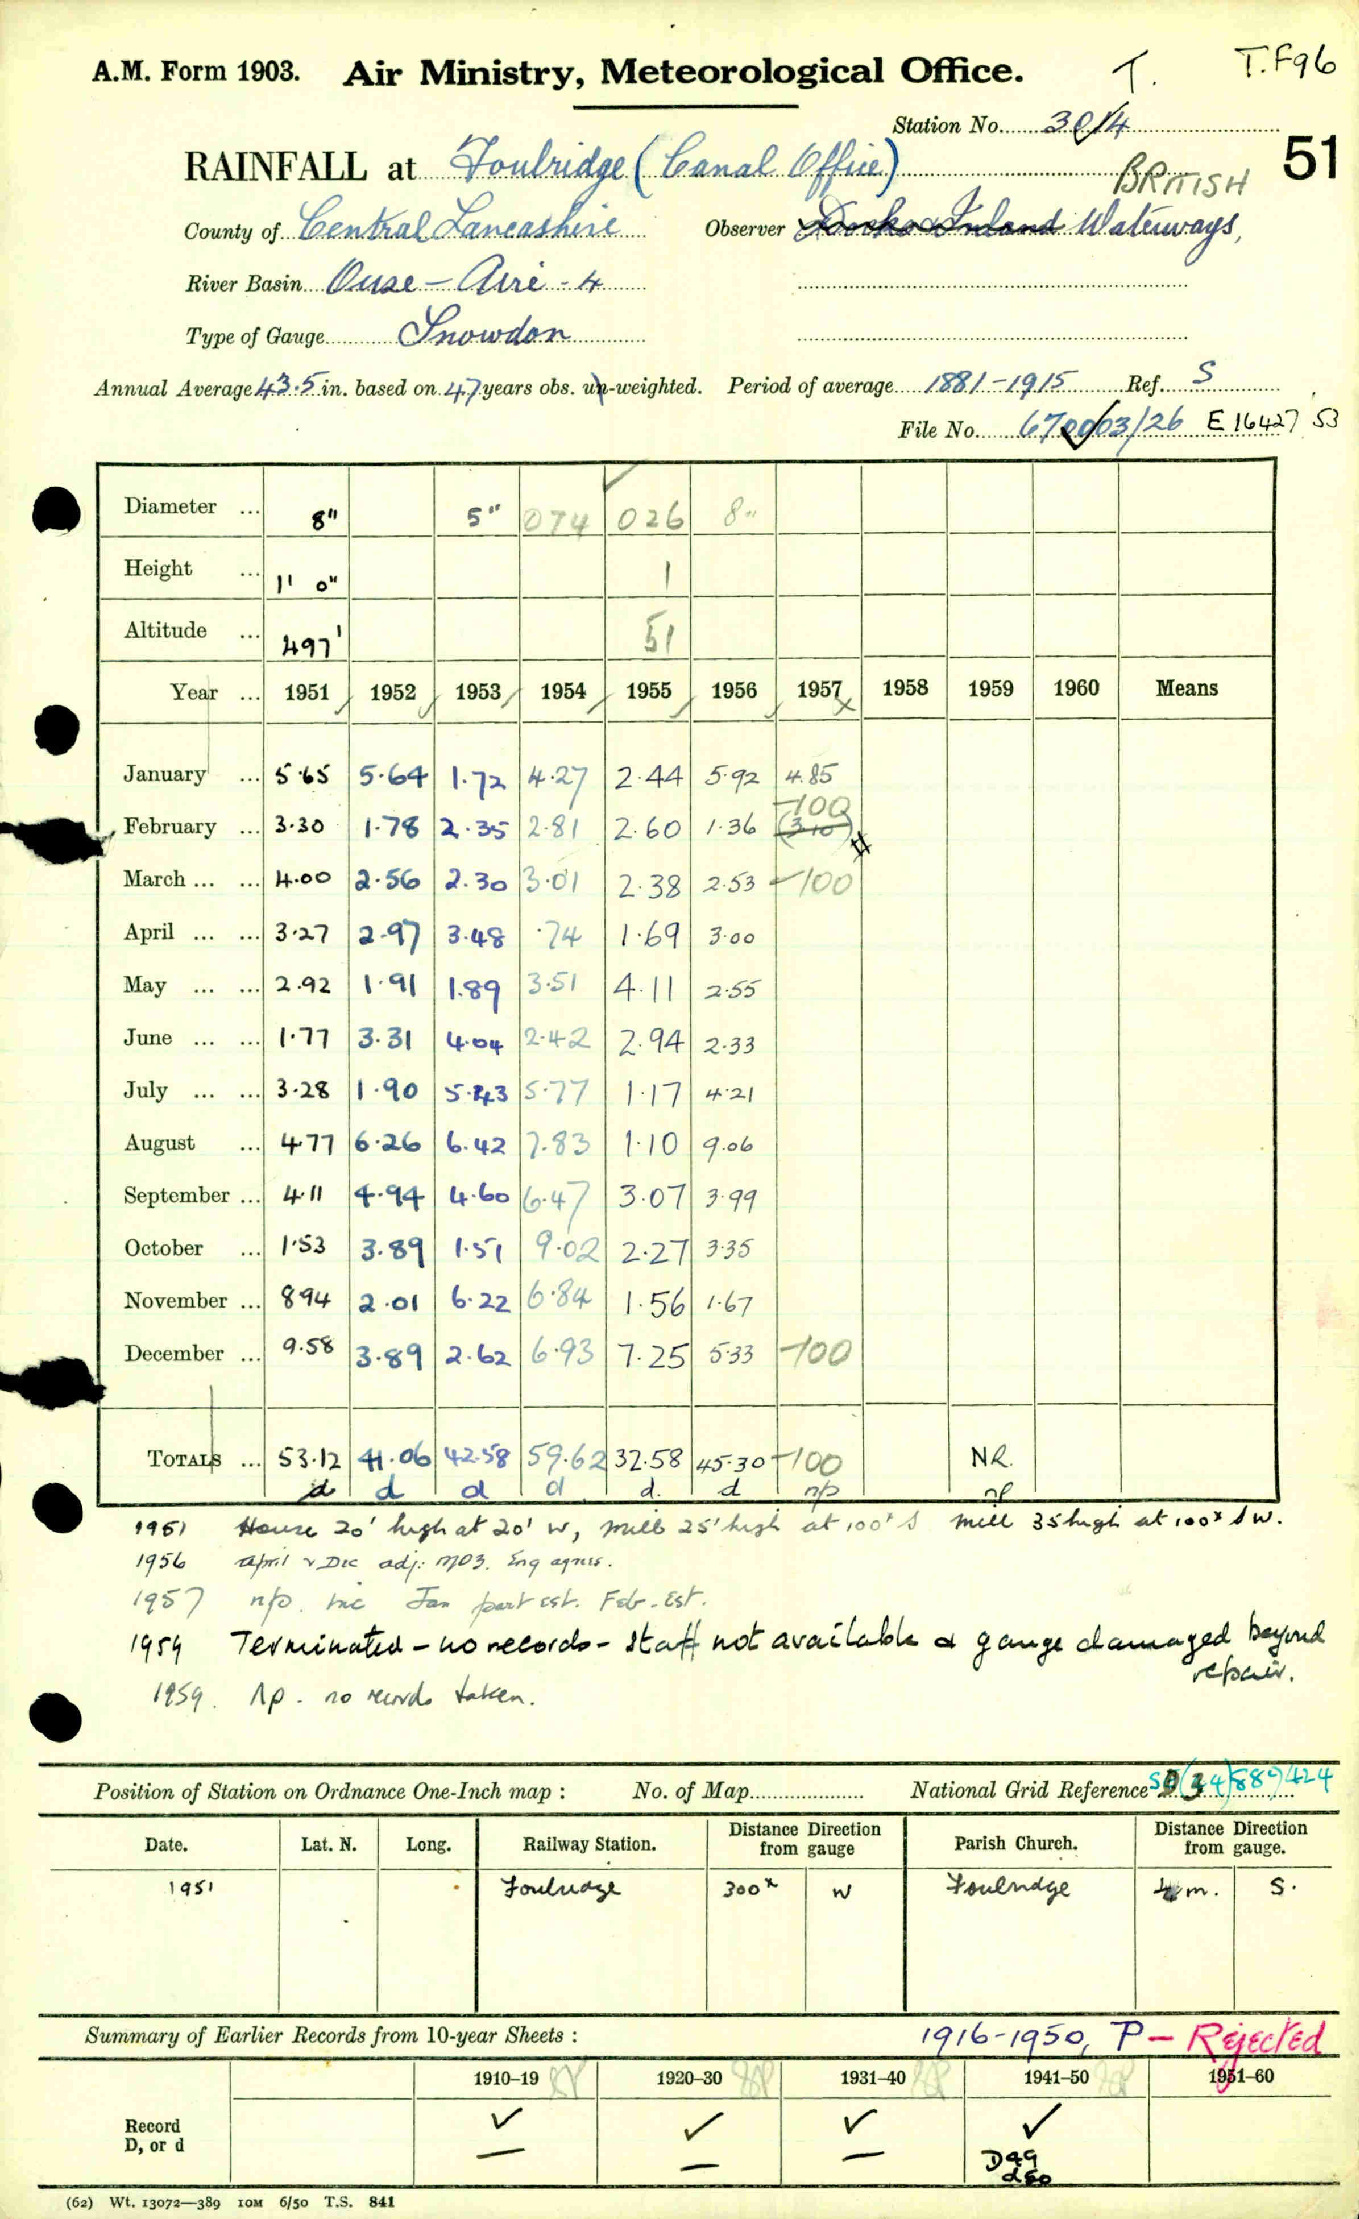 A.M. Form 1903. Air Ministry, Meteorological Office. T. T.F96
Station No. 3014
51
RAINFALL at Foulridge (Canal Office)
BRITISH
County of Central Lancashire Observer Docks & Inland Waterways,
River Basin Ouse - Aire - 4
Type of Gauge Snowdon
Annual Average 43.5 in. based on 47 years obs. un-weighted. Period of average 1881-1915 Ref. S
File No. 670003/26 E 16427 53
Diameter ... 8" 5" 074 026 8"
Height ... 1' 0" 1
Altitude ... 497' 51
Year ... 1951 1952 1953 1954 1955 1956 1957 1958 1959 1960 Means
January ... 5.65 5.64 1.72 4.27 2.44 5.92 4.85
February ... 3.30 1.78 2.35 2.81 2.60 1.36 -100 (3.10) #
March ... ... 4.00 2.56 2.30 3.01 2.38 2.53 -100
April ... ... 3.27 2.97 3.48 .74 1.69 3.00
May ... ... 2.92 1.91 1.89 3.51 4.11 2.55
June ... ... 1.77 3.31 4.04 2.42 2.94 2.33
July ... ... 3.28 1.90 5.43 5.77 1.17 4.21
August ... 4.77 6.26 6.42 7.83 1.10 9.06
September ... 4.11 4.94 4.60 6.47 3.07 3.99
October ... 1.53 3.89 1.51 9.02 2.27 3.35
November ... 8.94 2.01 6.22 6.84 1.56 1.67
December ... 9.58 3.89 2.62 6.93 7.25 5.33 -100
TOTALS ... 53.12 41.06 42.58 59.62 32.58 45.30 -100 NR.
d d d d d. d np np
1951 House 20' high at 20' W, mill 25' high at 100' S mill 35 high at 100x SW.
1956 April & Dec adj: MO3. Eng agrees.
1957 np. inc Jan part est. Feb. Est.
1959 Terminated - no records - staff not available & gauge damaged beyond
repair.
1959. np - no records taken.
Position of Station on Ordnance One-Inch map : No. of Map National Grid Reference (34) 889424
Date. Lat. N. Long. Railway Station. Distance from Direction gauge Parish Church. Distance from Direction gauge.
1951 Foulridge 300x W Foulridge m. S.
Summary of Earlier Records from 10-year Sheets : 1916-1950, P - Rejected
1910-19 1920-30 1931-40 1941-50 1951-60
Record ✓ ✓ ✓ ✓
D, or d — — — D49
d50
(62) Wt. 13072—389 10M 6/50 T.S. 841